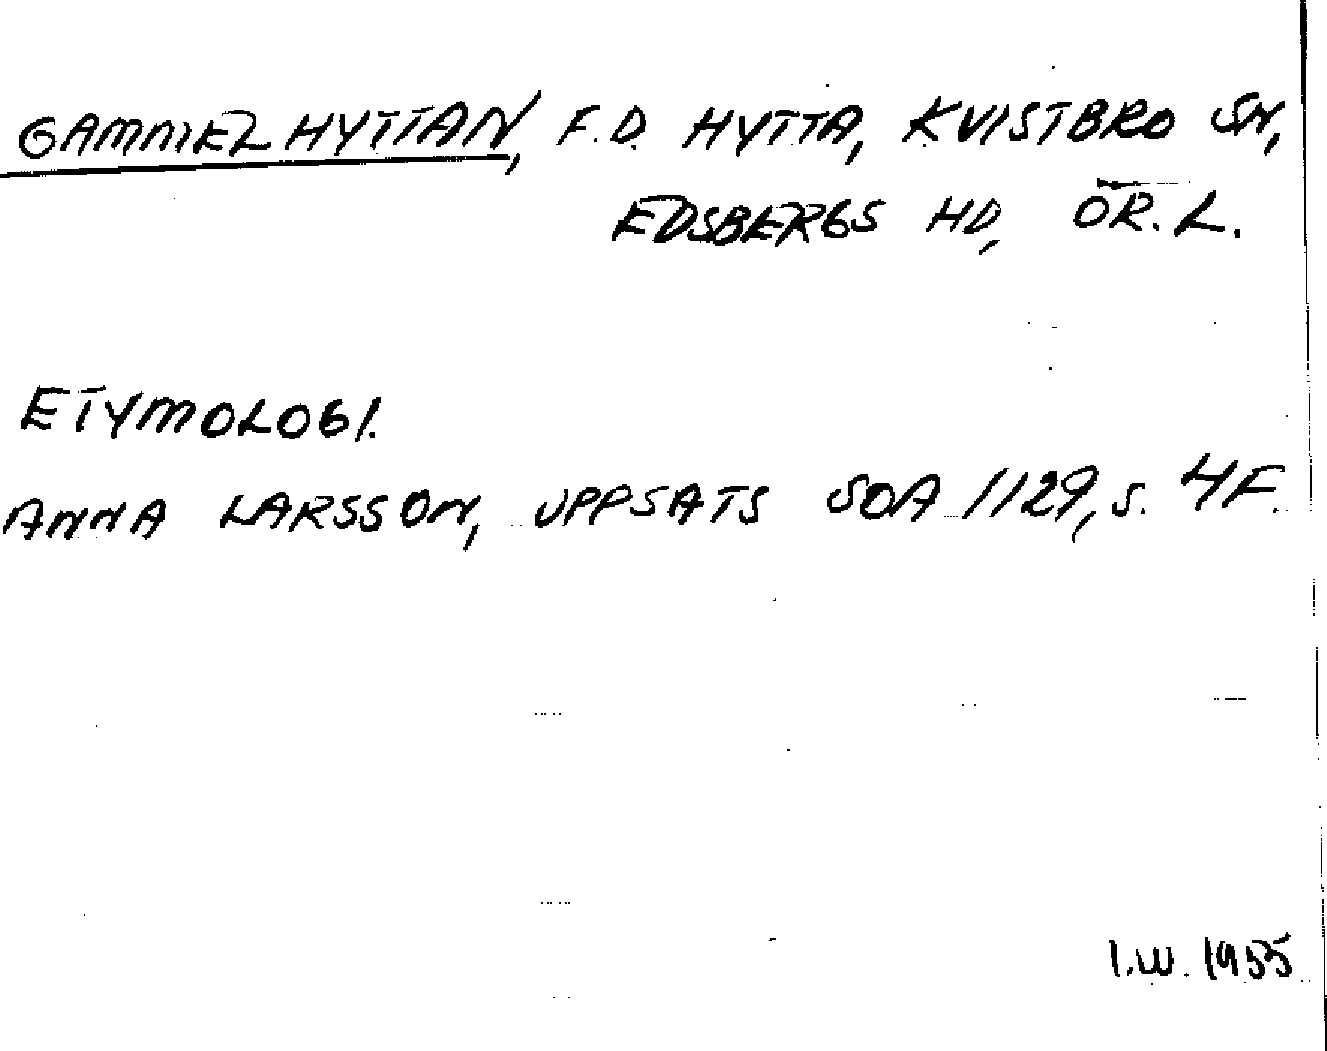 GAMMELHYTTAN, F.D. HYTTA, KVISTBRO SN,
EDSBERGS HD, ÖR.L.
ETYMOLOGI.
ANNA LARSSON, UPPSATS SOA 1129, S. 4F.
I.W. 1955